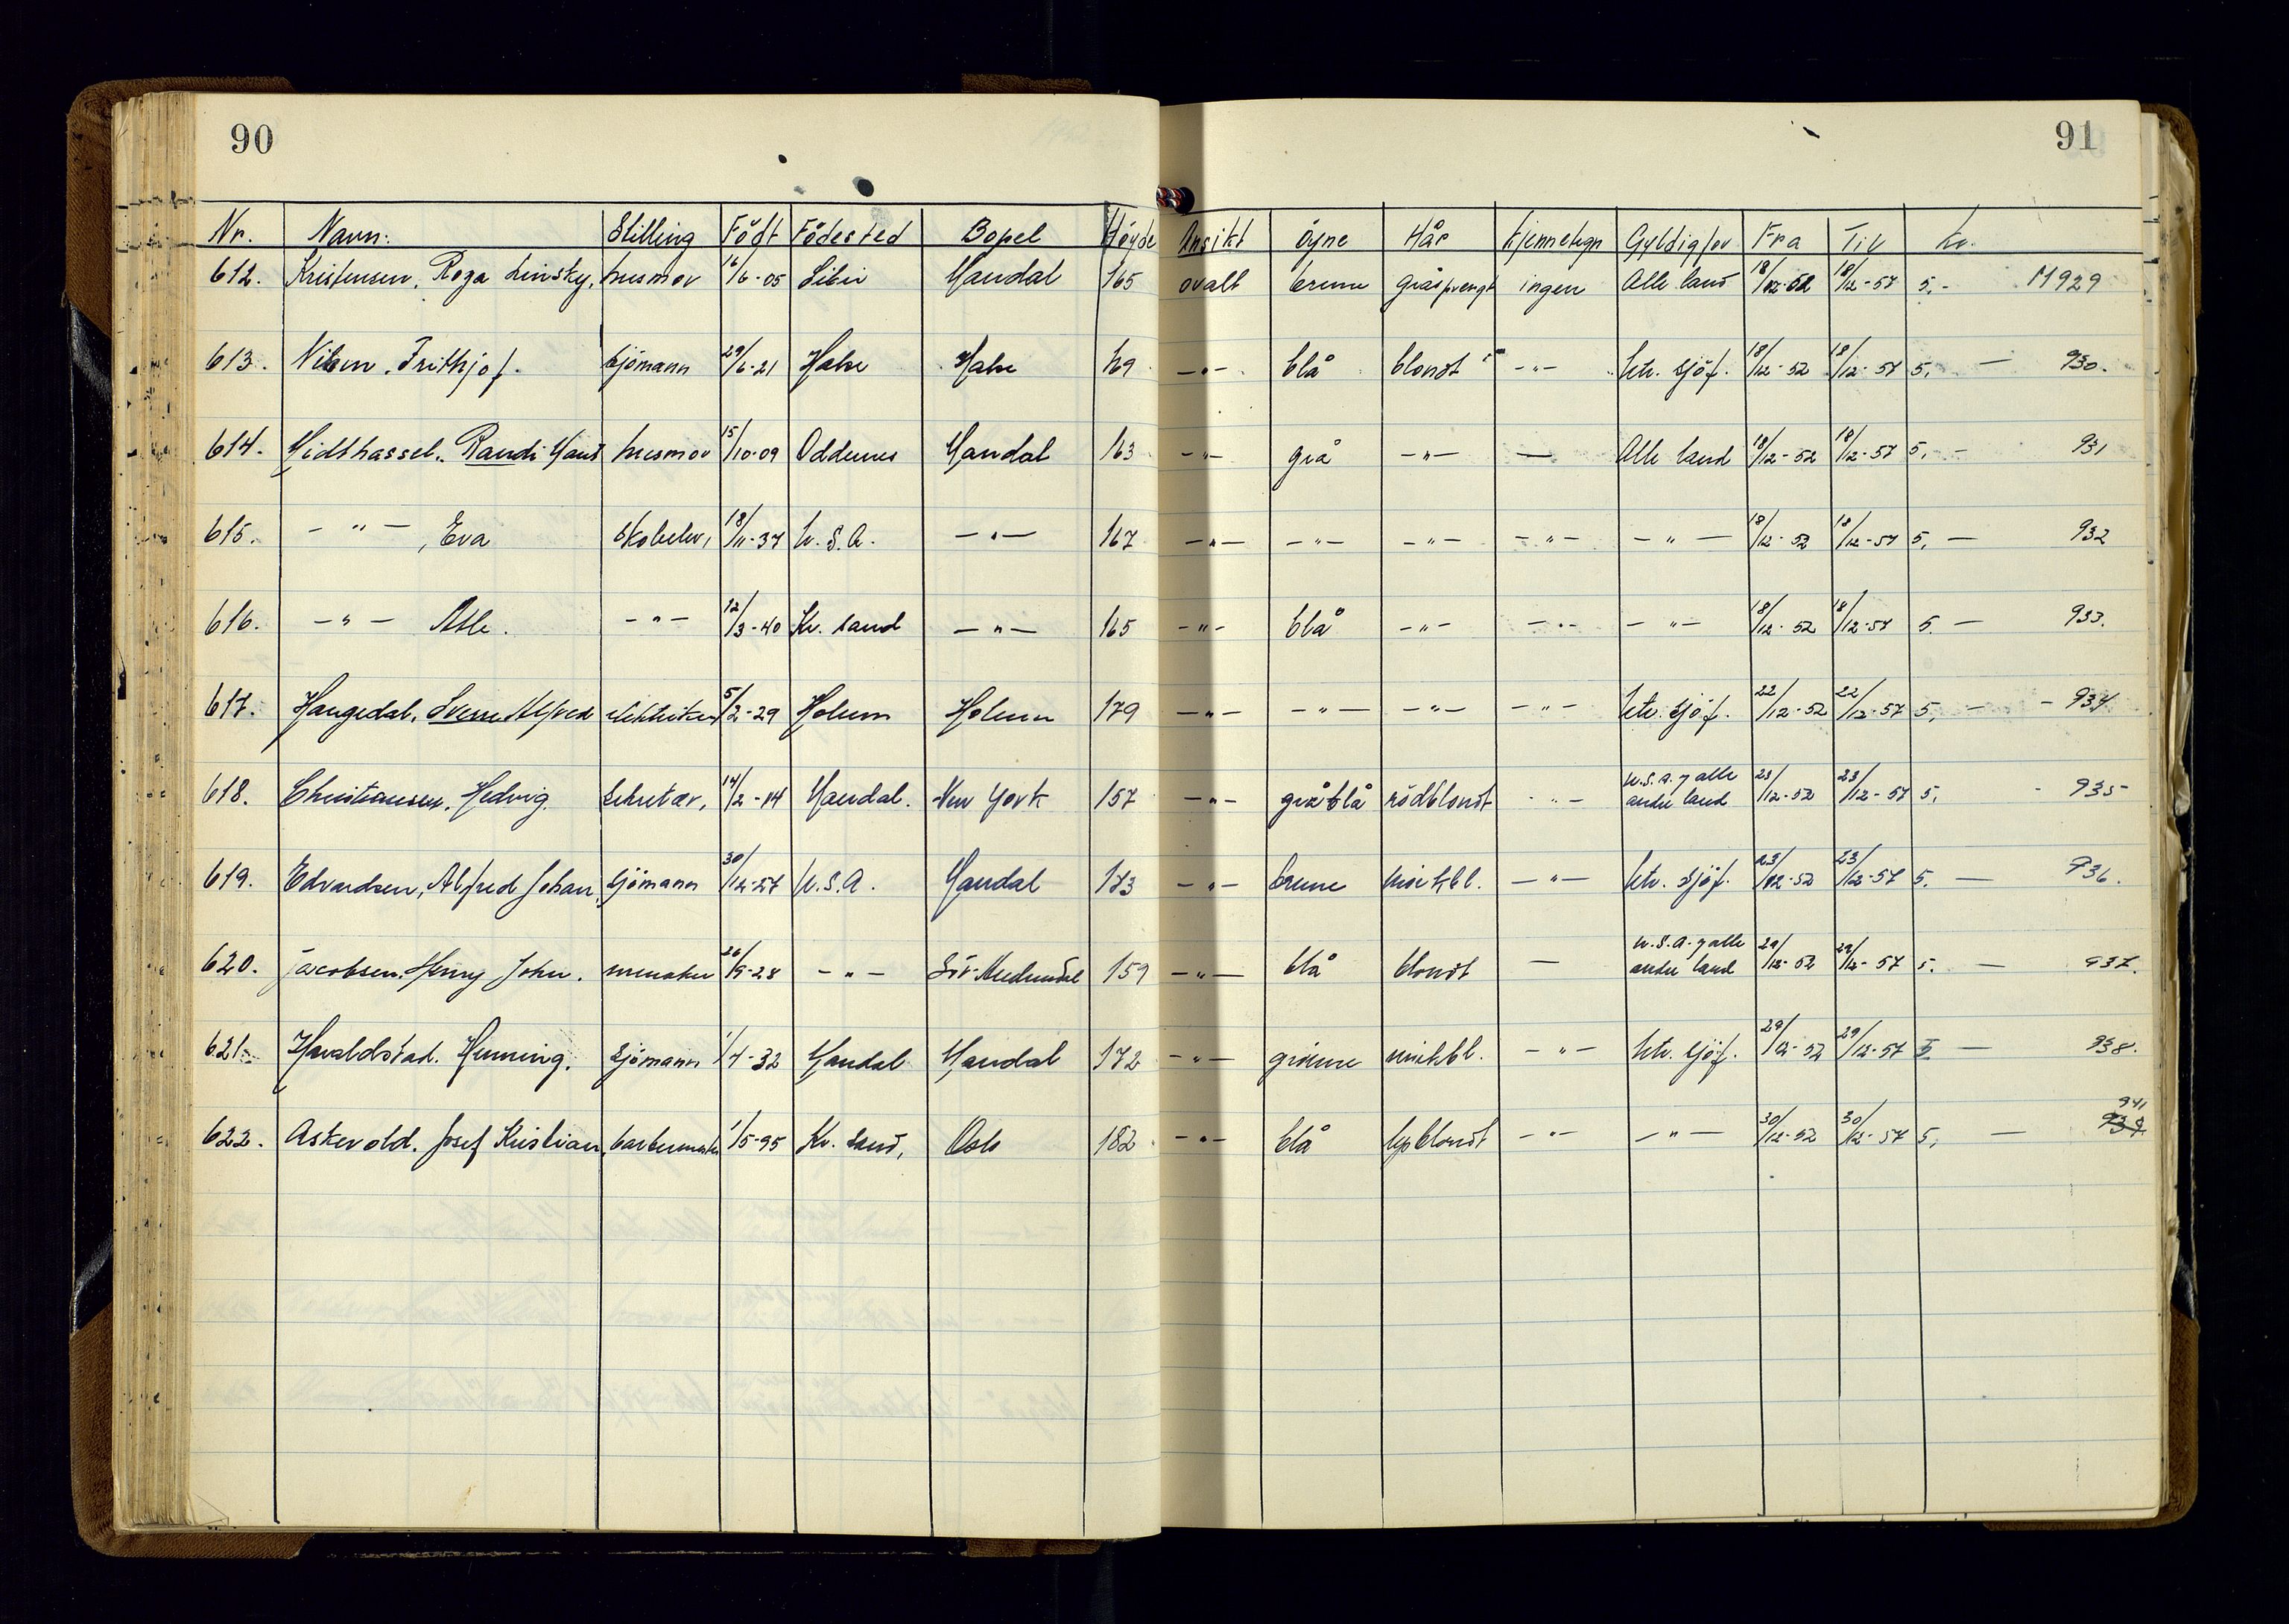 90
91
Nr. Navn: Stilling Födt Födested Bopel Höyde Ansikt Öyne Hår Kjennetegn Gyldig for Fra Til Kr.
612. Kristensen, Roza Linsky, husmor 16/6-05 Mandal 165 ovalt brune gråsprengt ingen Alle land 18/12-52 18/12-57 5.- M 929
613. Nilsen, Frithjof. Sjömann 29/6-21 Halse Halse 169 -"- blå blondt -"- Utr. sjöf. 18/12-52 18/12-57 5. — 930.
614. Midthassel, Randi husmor 15/10-09 Oddernes Mandal 163 -"- grå -"- — Alle land 18/12-52 18/12-57 5. - 931
615. -"-, Eva Skoleelev, 18/11-37 U.S.A. -"- 167 -"- -"- -"- -"- -"- 18/12-52 18/12-57 5. — 932
616. -"- Atle. -"- 12/3-40 Kr. sand -"- 165 -"- blå -"- -"- -"- 18/12-52 18/12-57 5. — 933.
617. Haugedal, Sverre Alfred elektriker 5/2-29 Holum Holum 179 -"- -"- -"- -"- Utr. sjöf. 22/12-52 22/12-57 5. — - 934
618. Christiansen, Hedvig Sekretær, 14/2-14 Mandal. New York 157 -"- gråblå rödblondt -"- U.S.A. og alle andre land 23/12-52 23/12-57 5. - 935
619. Edvardsen, Alfred Johan, Sjömann 30/12-27 U.S.A. Mandal 173 -"- brune mörkbl. -"- Utr. sjöf. 23/12-52 23/12-57 5. — 936.
620. Jacobsen, Henry John. 26/9-28 -"- Sör-Audnedal 159 -"- blå blondt — U.S.A. og alle andre land 29/12-52 29/12-57 5. — 937.
621. Haraldstad, Henning. Sjömann 1/4-32 Mandal Mandal 172 -"- grönne mörkbl. -"- Utr. sjöf. 29/12-52 29/12-57 5 — 938.
622. Askevold, Josef Kristian, barbermester 1/5-95 Kr. sand, Oslo 182 -"- blå lysblondt -"- -"- 30/12-52 30/12-57 5, — 941 939